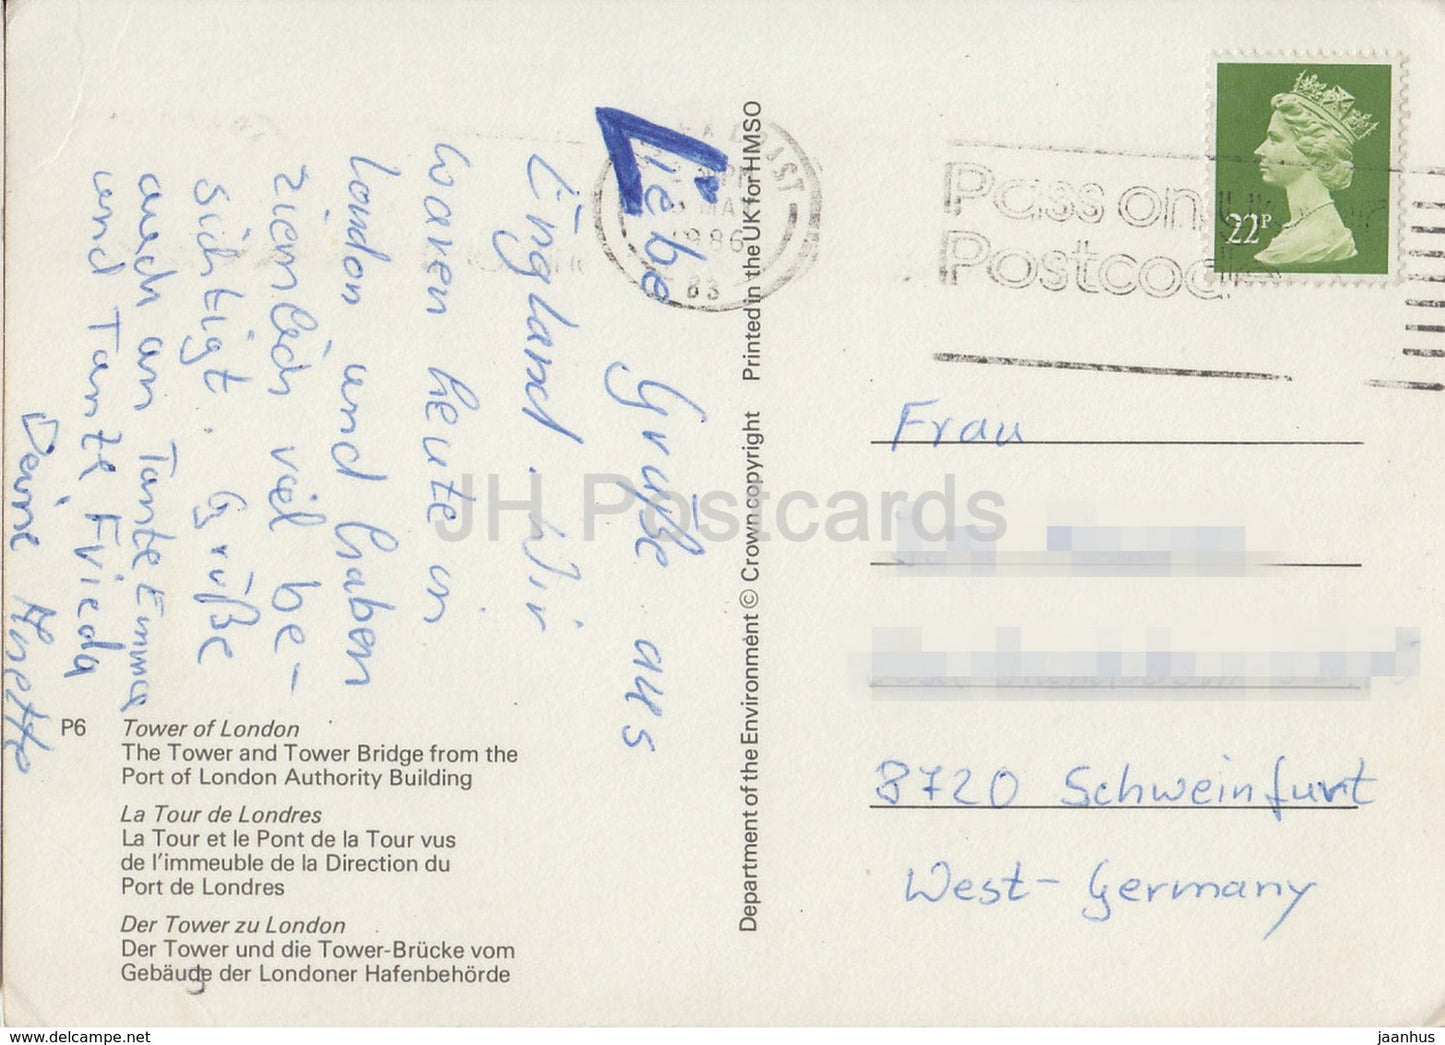 Liebe Grüße aus
England. Wir
waren heute in
London und haben
ziemlich viel be-
sichtigt. Grüße
auch an Tante Emma
und Tante Frieda
Deine
P6 Tower of London
The Tower and Tower Bridge from the
Port of London Authority Building
La Tour de Londres
La Tour et le Pont de la Tour vus
de l'immeuble de la Direction du
Port de Londres
Der Tower zu London
Der Tower und die Tower-Brücke vom
Gebäude der Londoner Hafenbehörde
Department of the Environment © Crown copyright Printed in the UK for HMSO
1986
83
Pass on
Postcod
22P
Frau
8720 Schweinfurt
West-Germany
JH Postcards
www.delcampe.net
jaanhus